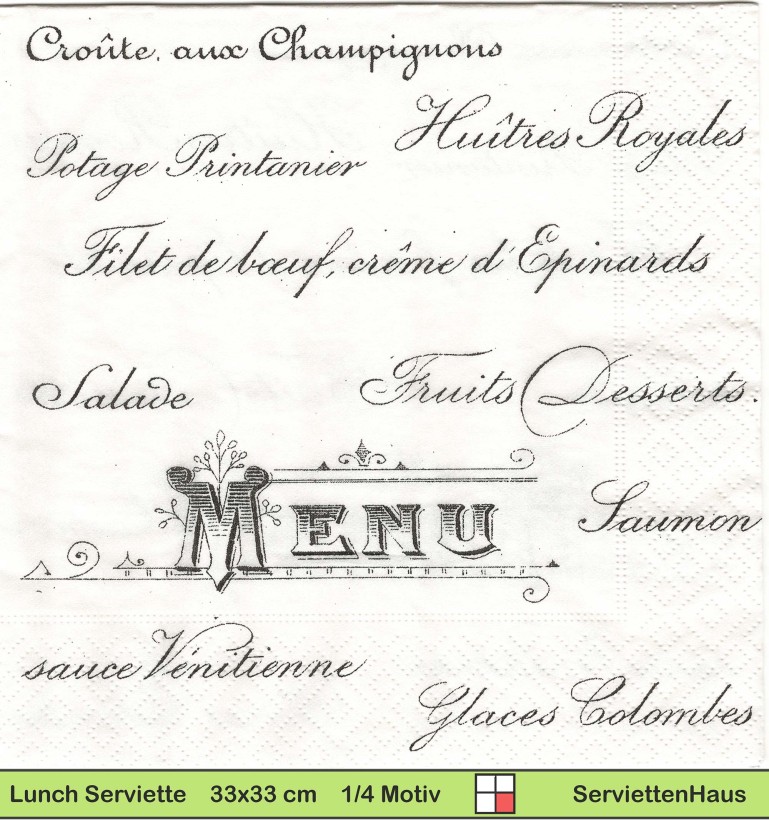 Croûte. aux Champignons
Huîtres Royales
Potage Printanier
Filet de bœuf, crême d'Epinards
Salade
Fruits Desserts.
MENU
Saumon
sauce Vénitienne
Glaces Colombes
Lunch Serviette 33x33 cm 1/4 Motiv ServiettenHaus